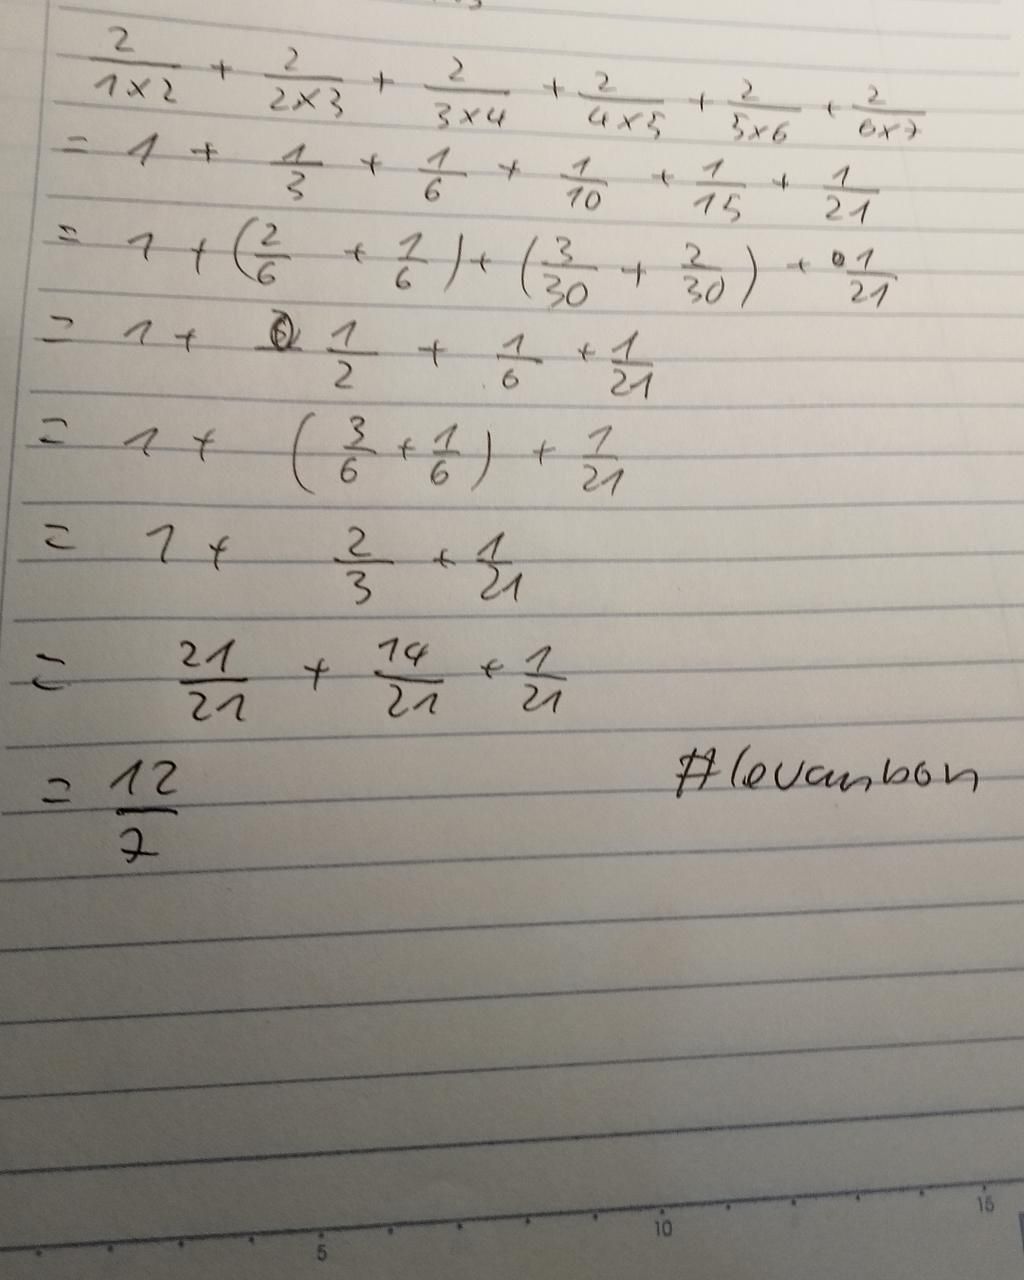 2/(1×2) + 2/(2×3) + 2/(3×4) + 2/(4×5) + 2/(5×6) + 2/(6×7)
= 1 + 1/3 + 1/6 + 1/10 + 1/15 + 1/21
= 1 + (2/6 + 1/6) + (3/30 + 2/30) + 1/21
= 1 + 1/2 + 1/6 + 1/21
= 1 + (3/6 + 1/6) + 1/21
= 1 + 2/3 + 1/21
= 21/21 + 14/21 + 1/21
= 12/7
#levanbon
5 10 15